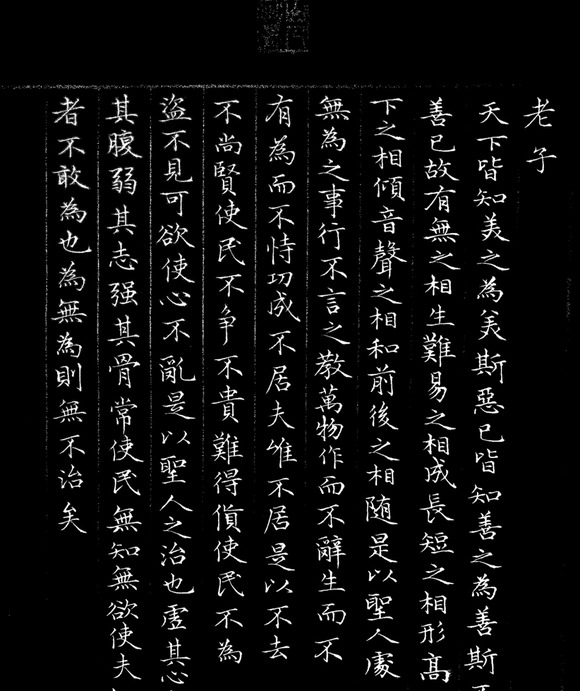 老子
天下皆知美之為美斯惡已皆知善之為善斯
善已故有無之相生難易之相成長短之相形高
下之相傾音聲之相和前後之相随是以聖人處
無為之事行不言之教萬物作而不辭生而不
有為而不恃功成不居夫唯不居是以不去
不尚賢使民不争不貴難得貨使民不為
盜不見可欲使心不亂是以聖人之治也虛其心
其腹弱其志强其骨常使民無知無欲使夫
者不敢為也為無為則無不治矣